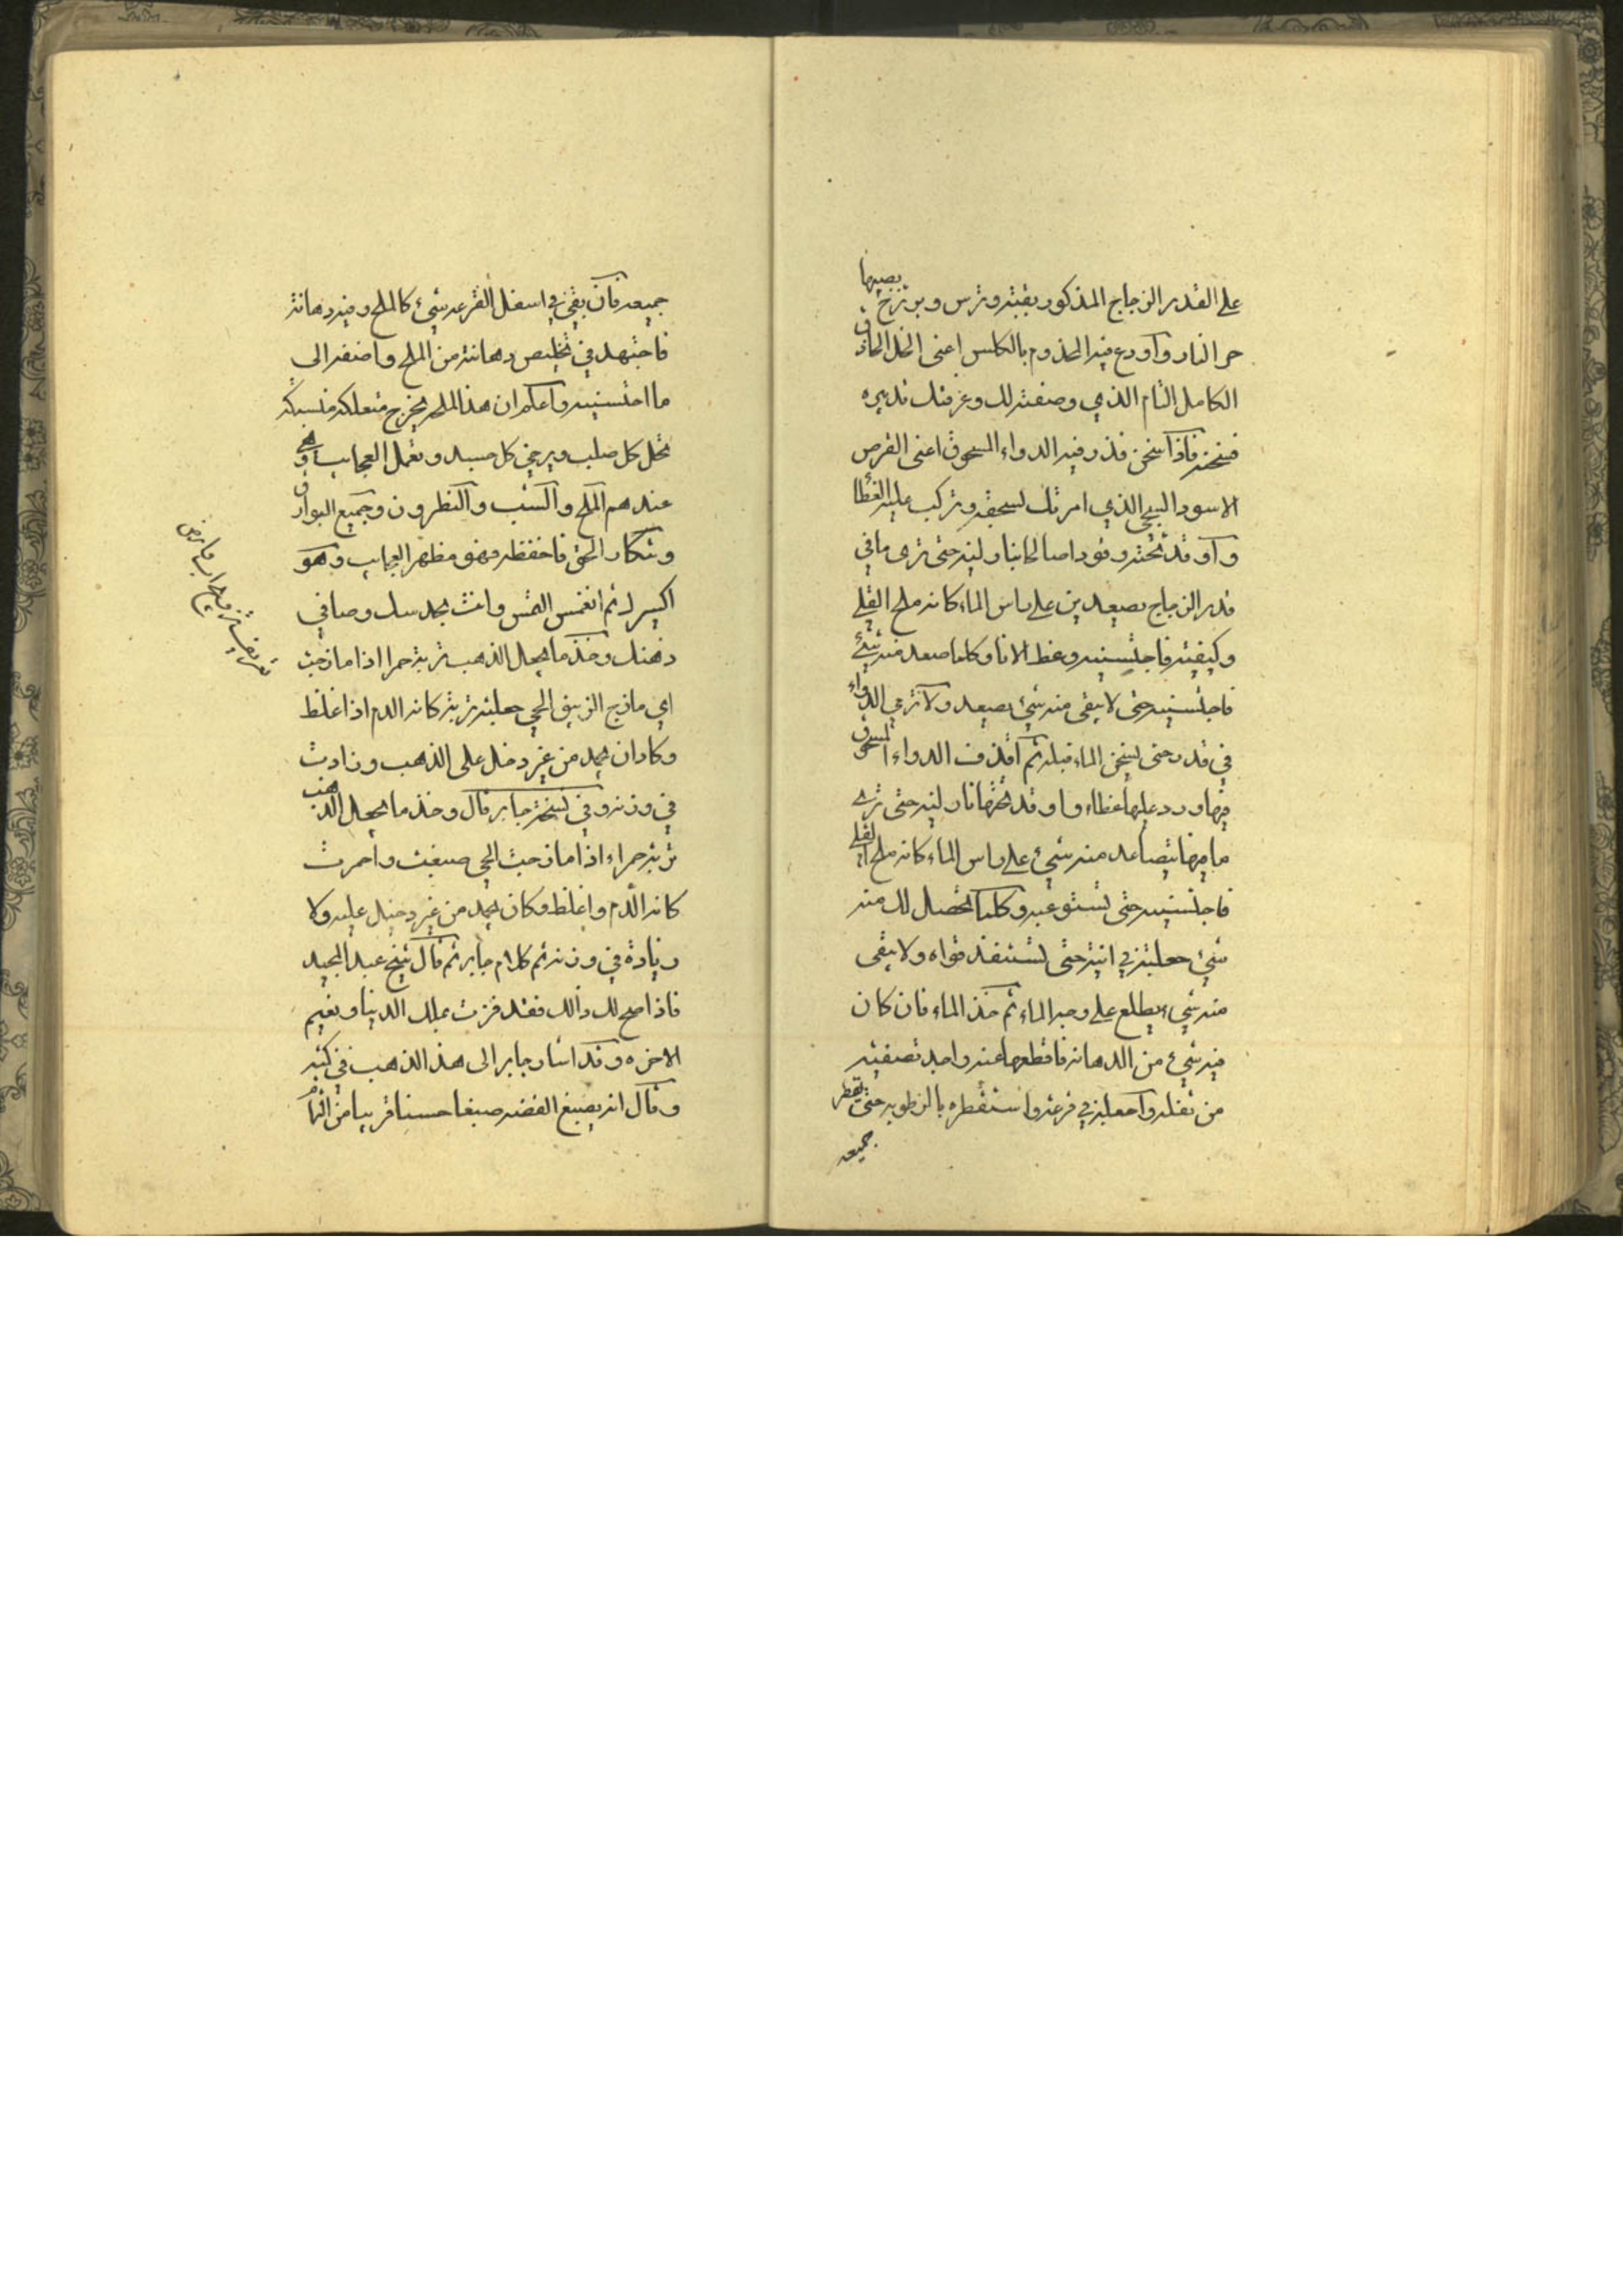 على القدر الزجاج المذكور بقبته وترس وبرزخ يصيبها
حر النار وأودع فيه المخدوم بالكلس اعني الخل الحاذق
الكامل التام الذي وصفته لك وعرفتك تدبيره
فتسخنه فاذا سخن فذر فيه الدواء المسحوق اعني القرص
الاسود السبجي الذي امرتك بسحقه وتركب عليه الغطا
وأوقد تحته وقودا صالحا بنار لينه حتى ترى ما في
قدر الزجاج يصعد من على راس الماء كانه ملح القلي
وكيفيته فاجتنيه وغط الانا وكلما صعد منه شيئ
فاجتنيه حتى لا يبقى منه شيئ يصعد ولا ترمي الدواء
في قدر حتى يسخن الماء قبله ثم اقذف الدواء المسحوق
فيها ورد عليها غطاء واوقد تحتها نار لينه حتى ترى
ما فيها يتصاعد منه شيئ على راس الماء كانه ملح القلي
فاجتنيه حتى تستوعبه وكلما تحصل لك منه
شيئ جعلته في انيته حتى تستنفذ قواه ولا يبقى
منه شيء يطلع على وجه الماء ثم خذ الماء فان كان
فيه شيئ من الدهانه فاقطعها عنه واجد تصفيته
من ثفله واجعله في قرعه واستقطره بالرطوبه حتى يقطر
جميعه
جميعه فان بقي في اسفل القرعه شيئ كالملح وفيه دهانة
فاجتهد في تخليص دهانته من الملح واضفه الى
ما اجتنيته واعلم ان هذا الملح يخرج
تحل كل صلب ويرخي كل جسد وتعمل العجايب وهي
عندهم الملح والشب والنظرون وجميع البوارق
وتنكار الحق فاحفظه فهو مظهر العجايب وهو
اكسير له ثم اغمس الشمس وانت بحمد
ذهنك وخذ ما يجعل الذهب تربة حمرا اذا مازجت
اي مازج الزيبق الحي جعلته تربة كانه الدم اذا غلظ
وكاد ان يجمد من غير دخل على الذهب وزادت
في وزنه وفي نسخة جابر قال وخذ ما يجعل الذهب
تربة حمراء اذا مازجت الحي صبغت واحمرت
كانه الدم واغلظ وكان يجمد من غير دخيل عليه ولا
زيادة في وزنه ثم كلام جابر ثم قال شيخ عبد المجيد
فاذا صح لك ذالك فقد فزت بملك الدنيا ونعيم
الاخره وقد اشار جابر الى هذا الذهب في كتبه
وقال انه يصبغ الفضه صبغا حسنا قريبا من التمام